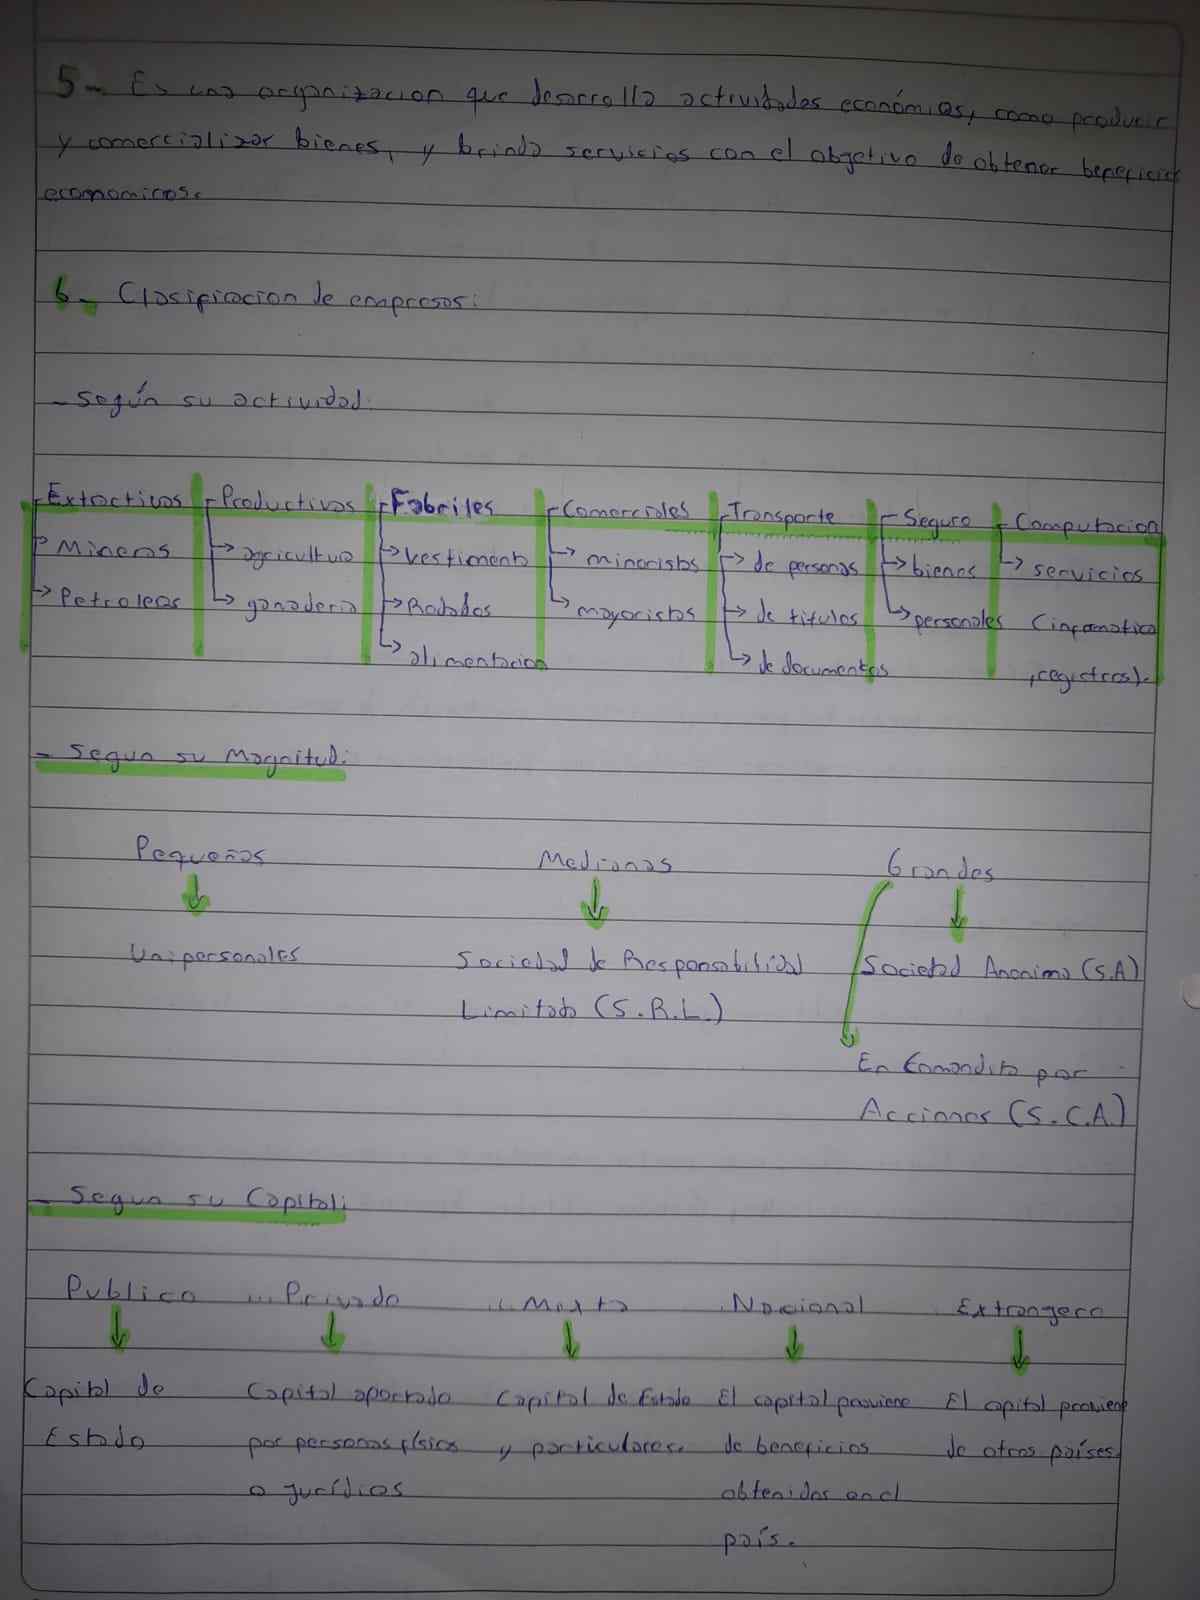 5- Es una organizacion que desarrolla actividades económias, como producir
y comercializar bienes, y brinda servicios con el objetivo de obtener beneficios
economicos.
6- Clasificacion de empresas:
- Según su actividad:
Extactivas Productivas Fabriles Comerciales Transporte Seguro Computacion
Mineras agricultura vestimenta minoristas de personas bienes servicios
Petroleras ganaderia Rodados mayoristas de titulos personales (informatica
alimentacion de documentos , registros).
- Segun su Magnitud:
Pequeñas Medianas Grandes
Unipersonales Sociedad de Responsabilidad Sociedad Anonima (S.A)
Limitada (S.R.L.)
En Comandita por
Acciones (S.C.A.)
- Segun su Capital:
Publico Privado Mixta Nacional Extrangera
Capital de Capital aportado Capital de Estado El capital proviene El capital proviene
Estado por personas físics y particulares. de beneficios de otros países
o jurídicas obtenidos en el
país.